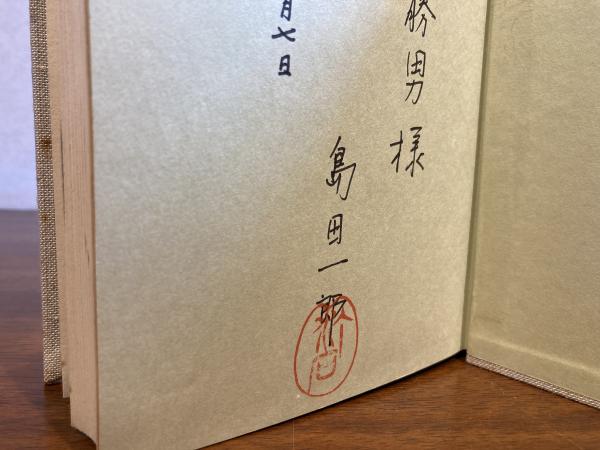 勝男様
島田一郎
月七日